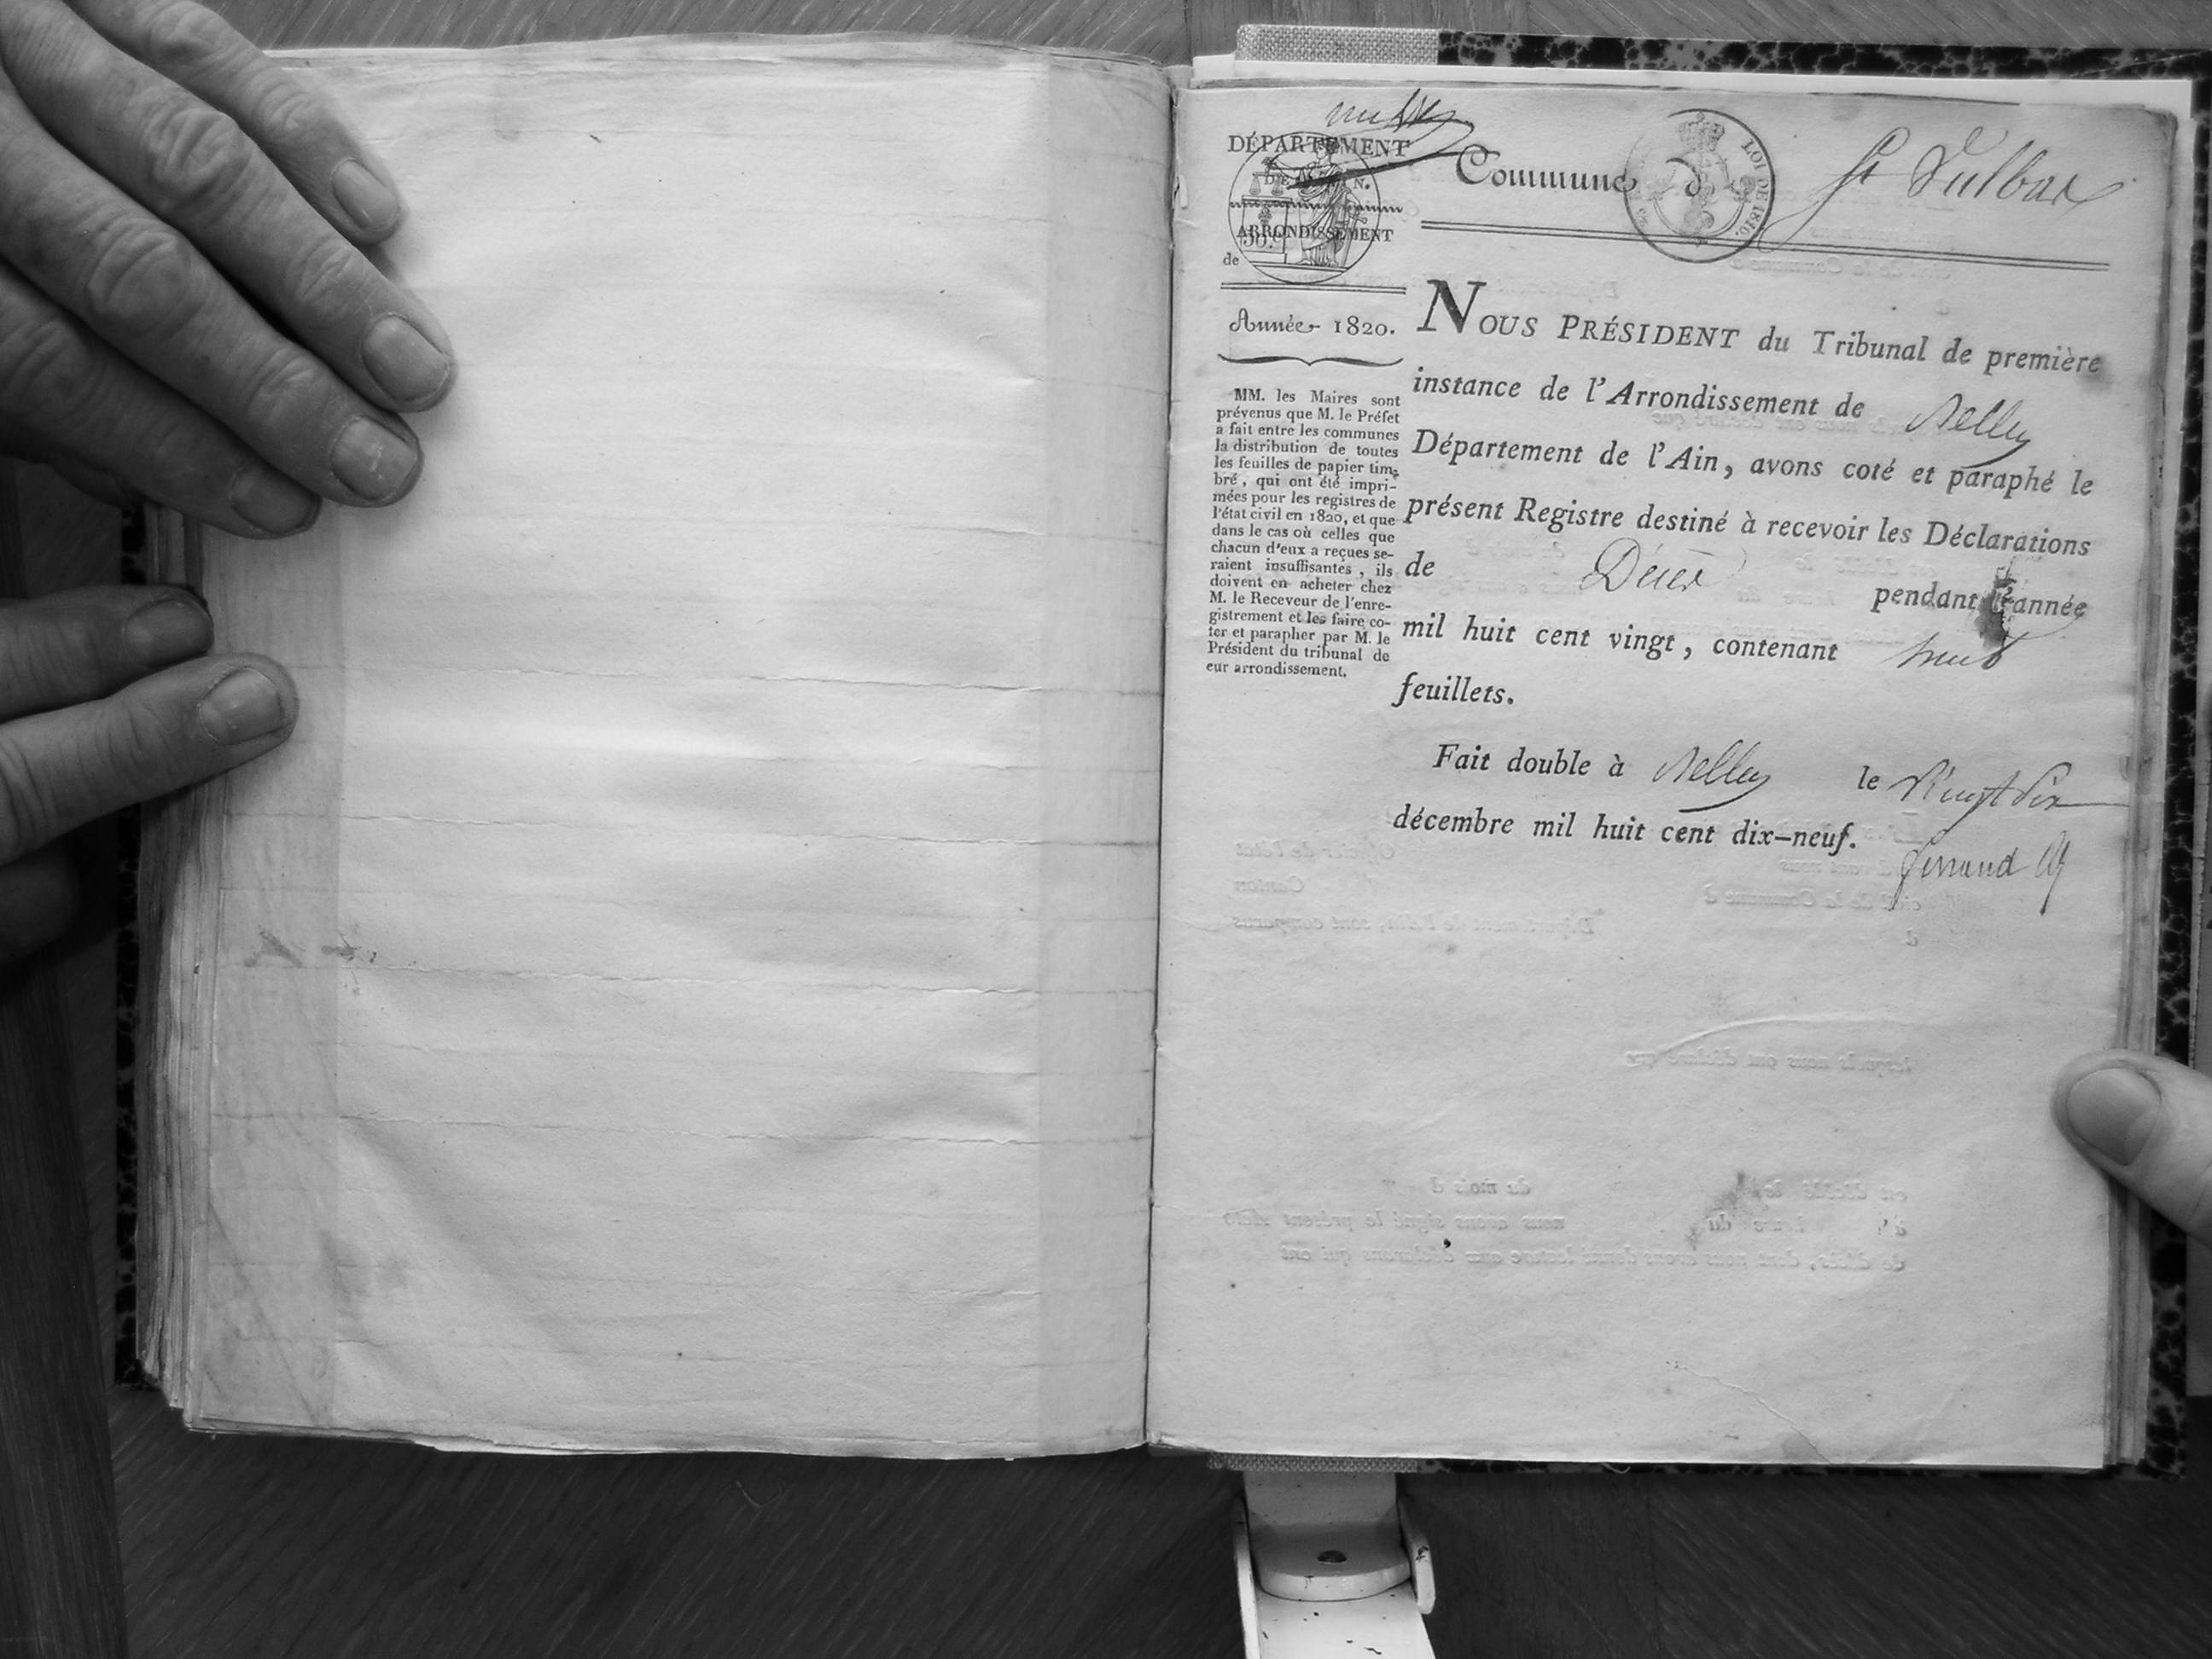 DÉPARTEMENT
DE L'AIN.
ARRONDISSEMENT
de
Année 1820.
MM. les Maires sont
prévenus que M. le Préfet
a fait entre les communes
la distribution de toutes
les feuilles de papier tim-
bré, qui ont été impri-
mées pour les registres de
l'état civil en 1820, et que
dans le cas où celles que
chacun d'eux a reçues se-
raient insuffisantes, ils
doivent en acheter chez
M. le Receveur de l'enre-
gistrement et les faire co-
ter et parapher par M. le
Président du tribunal de
eur arrondissement.
Commune d St Sulbas
LOI DE 1816.
NOUS PRÉSIDENT du Tribunal de première
instance de l'Arrondissement de Belley
Département de l'Ain, avons coté et paraphé le
présent Registre destiné à recevoir les Déclarations
de Décès pendant l'année
mil huit cent vingt, contenant huit
feuillets.
Fait double à Belley le Vingt Six
décembre mil huit cent dix-neuf.